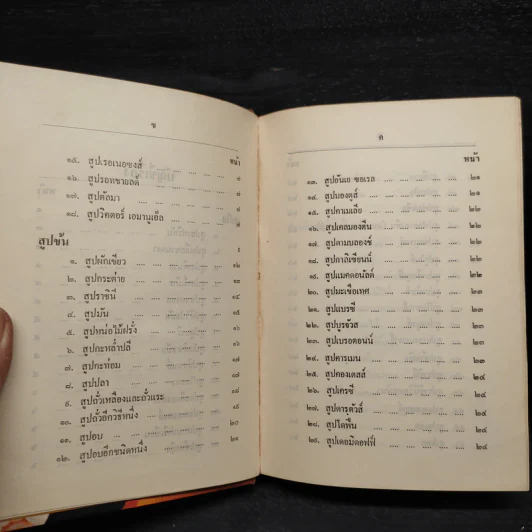 ข
หน้า
๑๕. สูปเรอเนอซงส์
๑๖. สูปรอทชายลด์
๑๗. สูปตัลมา
๑๘. สูปวิคตอรี่ เอมานูเอ็ล
สูปข้น
๑. สูปผักเขียว ๑๒
๒. สูปกระต่าย ๑๓
๓. สูปราชินี ๑๔
๔. สูปมัน ๑๕
๕. สูปหน่อไม้ฝรั่ง ๑๖
๖. สูปกะหล่ำปลี ๑๖
๗. สูปกะท่อม
๘. สูปปลา
๙. สูปถั่วเหลืองและถั่วแระ ๑๙
๑๐. สูปถั่วอีกวิธีหนึ่ง
๑๑. สูปอบ ๒๐
๑๒. สูปอบอีกชนิดหนึ่ง
ค
หน้า
๑๓. สูปอันเย ซอเรล ๒๑
๑๔. สูปมองตูส์ ๒๑
๑๕. สูปคาเมเลีย ๒๑
๑๖. สูปเคลมองตีน ๒๒
๑๗. สูปคามบลองช์ ๒๒
๑๘. สูปกาลิเซียนน์ ๒๒
๑๙. สูปแมคดอนัลด์ ๒๒
๒๐. สูปมะเขือเทศ ๒๒
๒๑. สูปแบรซี ๒๓
๒๒. สูปบูรจัวส ๒๓
๒๓. สูปเบรอตอนน์ ๒๓
๒๔. สูปคารเมน ๒๓
๒๕. สูปคองเดสส์ ๒๔
๒๖. สูปเครซี ๒๔
๒๗. สูปดารุคัวส์ ๒๔
๒๘. สูปโดฟีน ๒๔
๒๙. สูปเดอมิดอฟฟ์ ๒๔